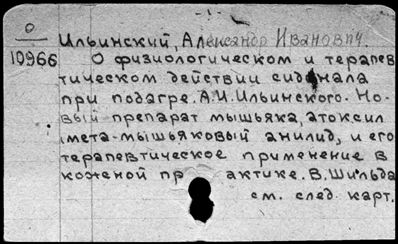 О
10966
Ильинский, Александр Иванович.
О физиологическом и терапев
тическом действии сидонала
при подагре. А.И. Ильинского. Но-
вый препарат мышьяка, атоксил
(мета-мышьяковый анилид, и его
терапевтическое применение в
кожной пр актике. В. Шильда
см. след. карт.